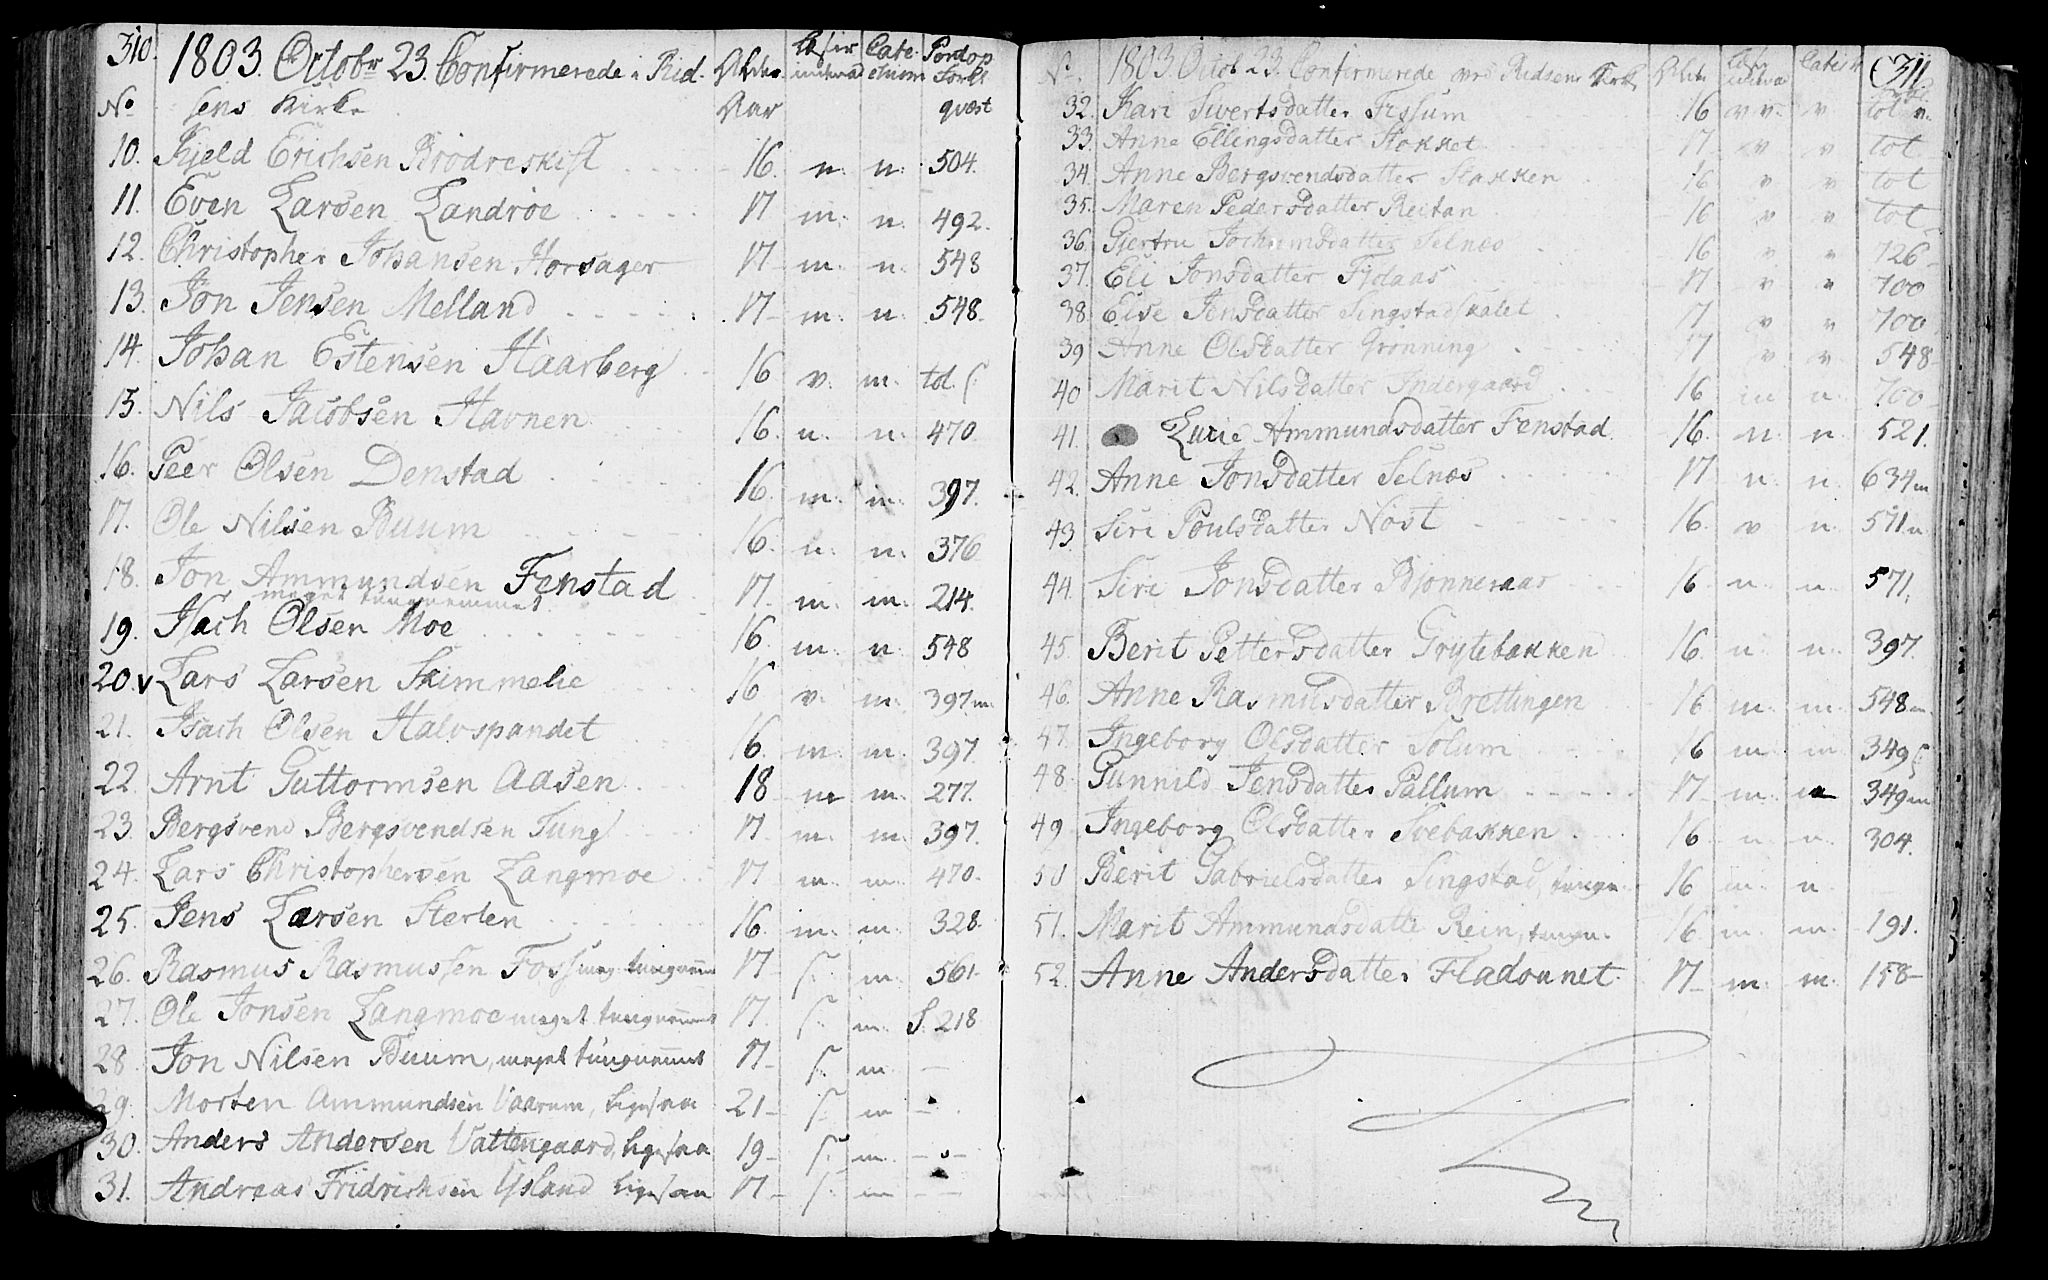 310.
1803. Octobr 23. Confirmerede i Rid- Alder Cate- Pontop
No sens Kirke Aar chism Forkl quæst
10. Kield Erichsen Brodreskift 16. n. n. 504.
11. Even Larsen Landrøe 17 m. n. 492.
12. Christopher Johansen Horsager 17 m. n. 548
13. Jon Jensen Melland 17 m. n. 548.
14. Johan Estensen Haarberg 16 v. m. tot.
15. Nils Jacobsen Havnen 16. n. n. 470
16. Peer Olsen Denstad 16. m. m. 397.
17. Ole Nilsen Buum 16. n. n. 376
18. Jon Ammundsen Fenstad 17 m. m. 214.
meget tungnemmet
19. Isach Olsen Moe 16 m. n. 548
20. v Lars Larsen Skimmelie 16 v. m. 397 m.
21. Isach Olsen Halvspandet 16 m. m. 397.
22. Arnt Guttormsen Aasen 18 m m. 277.
23. Bergsvend Bergsvendsen Tung 17 m. m. 397.
24. Lars Christophersen Langmoe 17 m. m. 470.
25. Jens Larsen Sterten 16. m. m. 328.
26. Rasmus Rasmussen Foss meg. tungnem 17 s. m. 561.
27. Ole Jonsen Langmoe meget tungnemmet 17. s. m. S. 218
28. Jon Nilsen Buum, meget tungnemmet 17 s. m —
29. Morten Ammundsen Vaarum, ligesaa 21 s. m —
30. Anders Andersen Vattengaard, ligesaa 19 s. m. —
31. Andreas Fridrichsen Ysland ligesaa 17 s. m —
311
No. 1803. Octob 23. Confirmerede ved Ridsens Kirke Alder Catech
32. Kari Sivertsdatter Fissum 16 v v. v tot v.
33. Anne Ellingsdatter Stokket 17 v v tot
34. Anne Bergsvendsdatter Stakken 16 v v tot
35. Maren Pedersdatter Reitan 16 v v tot
36. Giertru Jochumsdatter Selnes 16 v v 726
37. Eli Jonsdatter Fijdaas 17 v v 700
38. Else Jensdatter Singstadskalet 17 v v 700
39 Anne Olsdatter Grønning 17 v v 548
40 Marit Nilsdatter Indergaard 16 m n. 700
41. Lucie Ammundsdatter Fenstad 16. n. n. 521.
42. Anne Jonsdatter Selnæs 17 n. n. 634 m
43. Siri Poulsdatter Nøst 16. v n. 571 n
44. Siri Jonsdatter Bjonneraas 16 n. n. 571.
45. Berit Pettersdatter Grytebakken 16. n. n. 397.
46. Anne Rasmusdatter Brettingen 16 m. m. 548 m.
47. Ingeborg Olsdatter Solum 16 m. m. 349
48. Gunnild Jensdatter Pallum 17 m. m 349 m
49. Ingeborg Olsdatter Svebakken 16 n. n. 304.
50 Berit Gabrielsdatter Singstad, tungn. 16 m. n.
51. Marit Ammundsdatte Rein, tungn. 16. m. m. 191.
52. Anne Andersdatter Fladaunet 17 m. m. 158